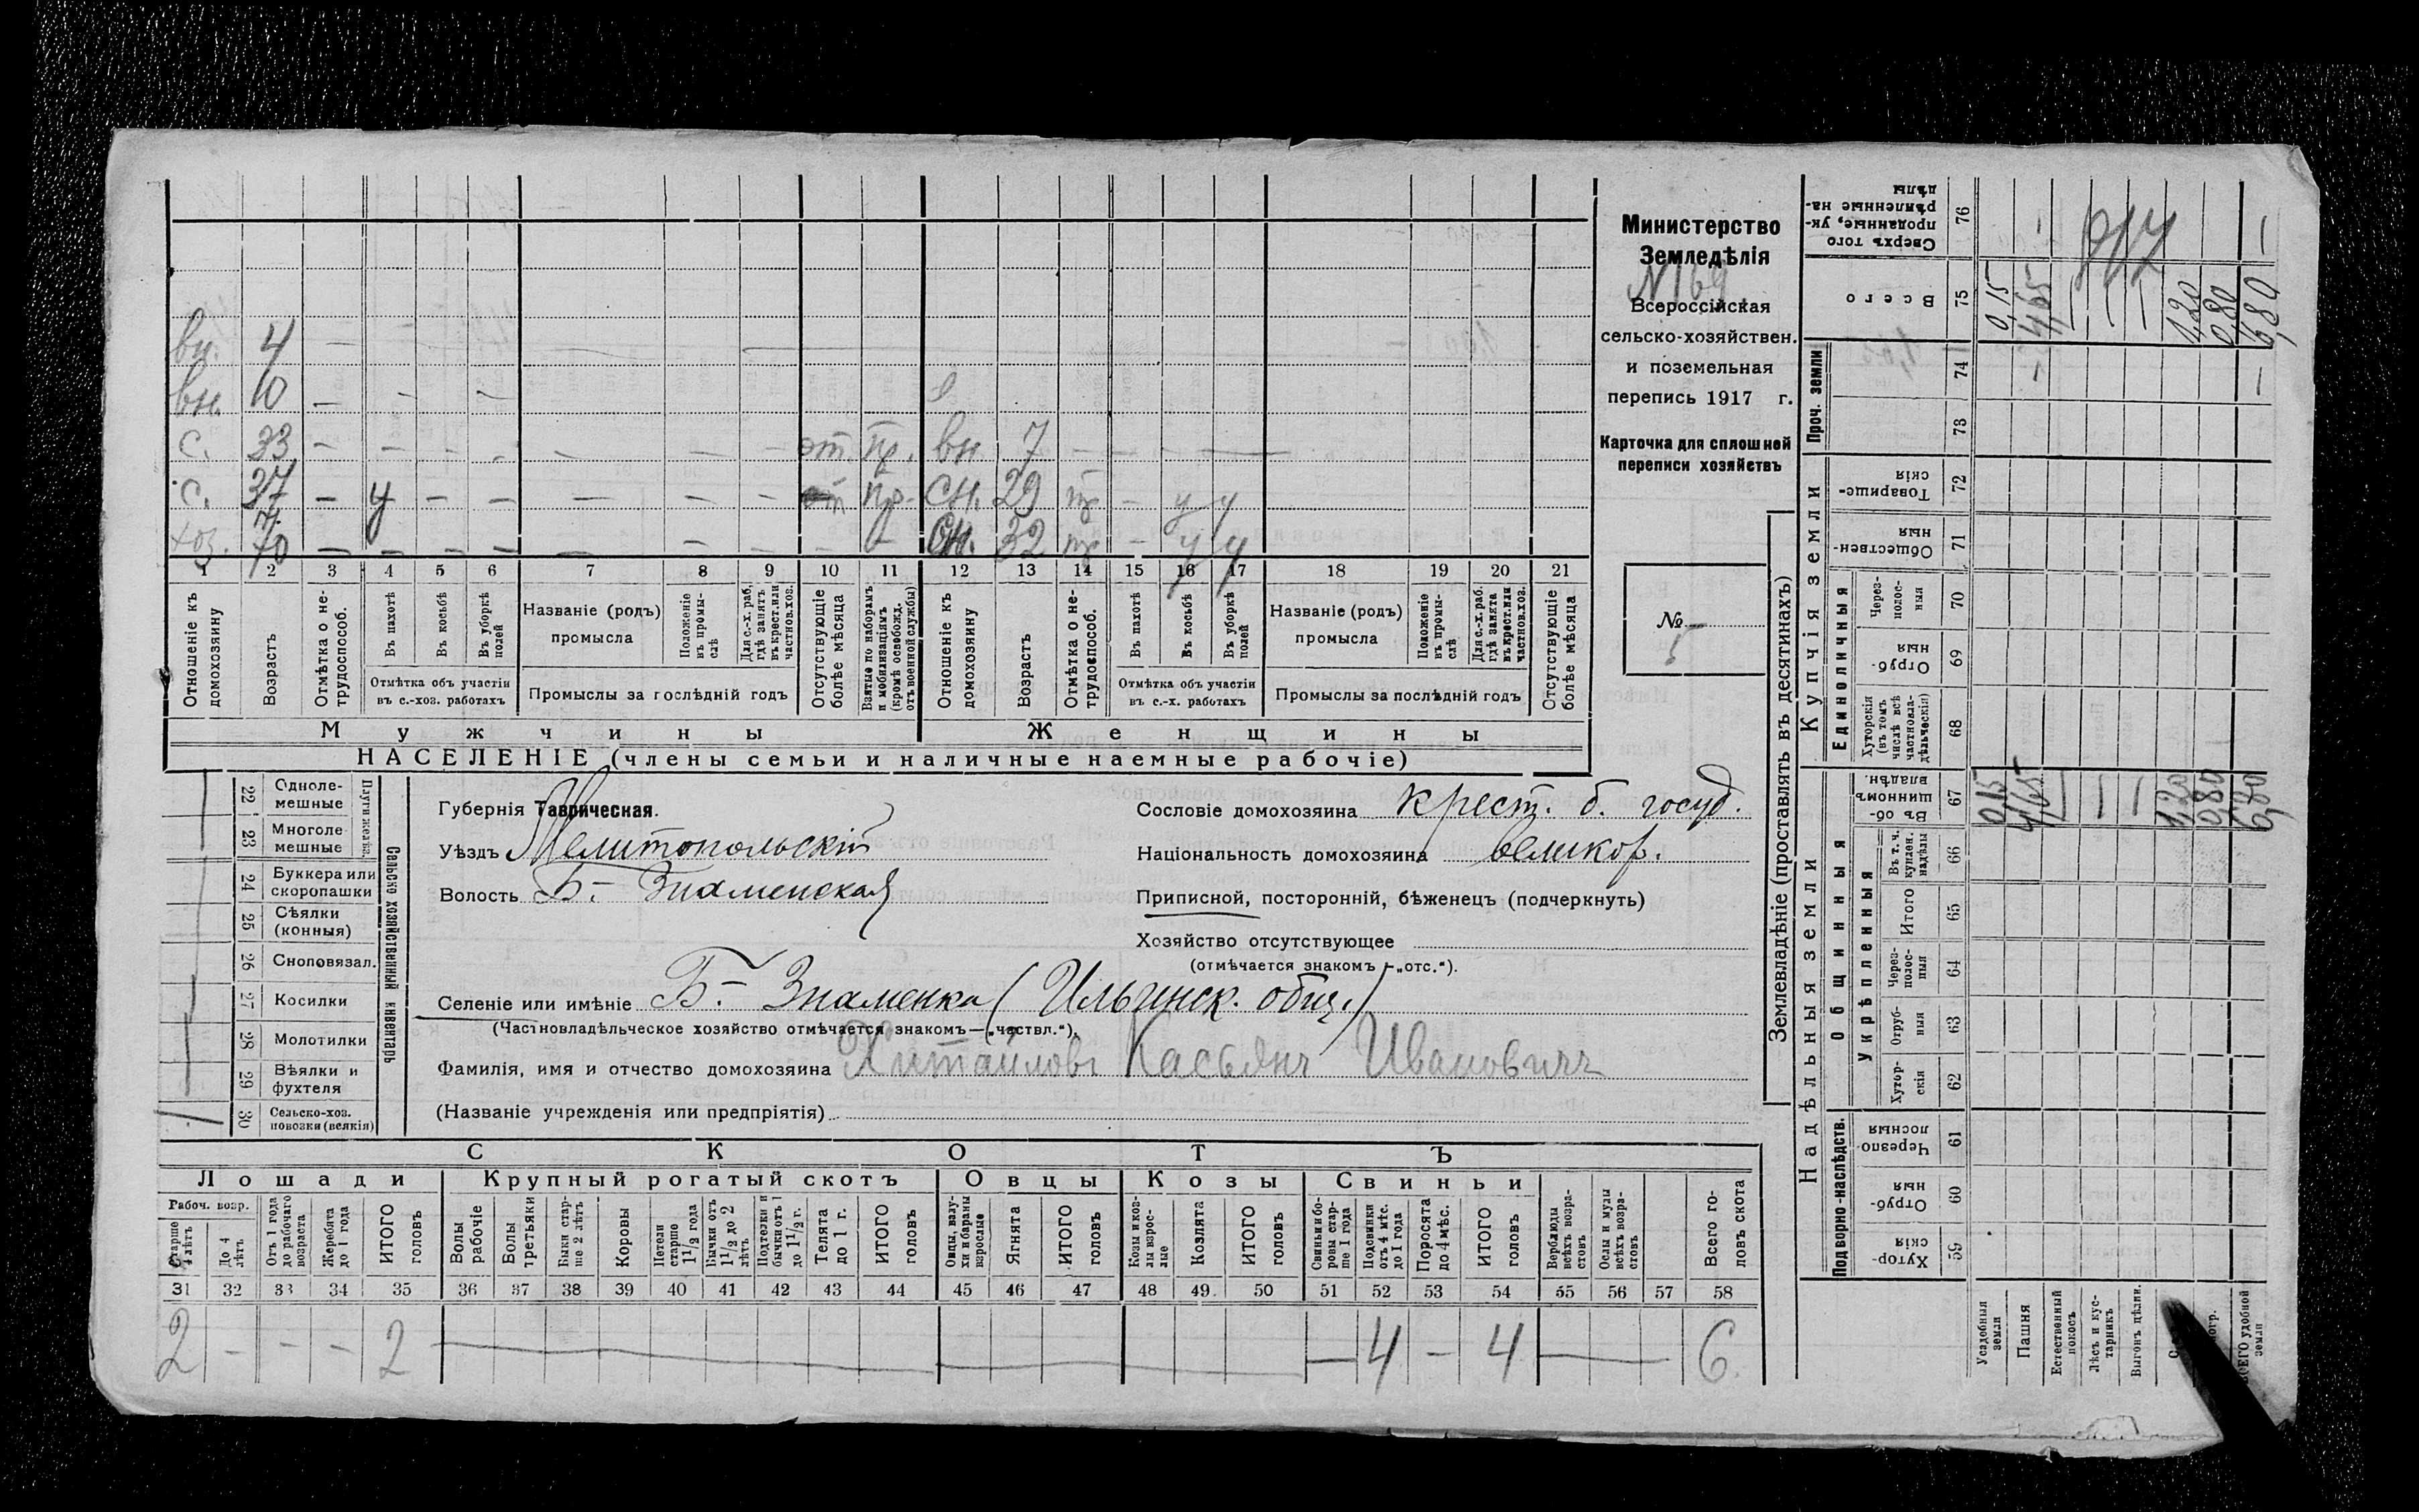 вн. 4 —
вн. 10 — — —
с. 33 — — — — — — — от. пр. вн. 7 — — — —
с. 37 — у — — — — — от пр. сн. 29 пр — у у
хоз. 70 — — — — — — — — — сн. 32 пр — у у
1 2 3 4 5 6 7 8 9 10 11 12 13 14 15 16 17 18 19 20 21
Отношеніе къ домохозяину
Возрастъ
Отмѣтка о не-трудоспособ.
Въ пахотѣ
Въ косьбѣ
Въ уборкѣ полей
Отмѣтка объ участіи въ с.-хоз. работахъ
Названіе (родъ) промысла
Положеніе въ промы-слѣ
Для с.-х. раб. гдѣ занятъ въ крест. или частнов. хоз.
Промыслы за послѣдній годъ
Отсутствующіе болѣе мѣсяца
Взятые по наборамъ и мобилизаціямъ (кромѣ освобожд. отъ военной службы)
Отношеніе къ домохозяину
Возрастъ
Отмѣтка о не-трудоспособ.
Въ пахотѣ
Въ косьбѣ
Въ уборкѣ полей
Отмѣтка объ участіи въ с.-х. работахъ
Названіе (родъ) промысла
Положеніе въ промы-слѣ
Для с.-х. раб. гдѣ занята въ крест. или частнов. хоз.
Промыслы за послѣдній годъ
Отсутствующіе болѣе мѣсяца
Мужчины
Женщины
НАСЕЛЕНІЕ (члены семьи и наличные наемные рабочіе)
Министерство
Земледѣлія
N 169
Всероссійская
сельско-хозяйствен.
и поземельная
перепись 1917 г.
Карточка для сплошной
переписи хозяйствъ
№
5
22 Одноле-мешные
23 Многоле-мешные
Плуги желѣз.
24 Буккера или скоропашки
25 Сѣялки (конныя)
26 Сноповязал.
27 Косилки
28 Молотилки
29 Вѣялки и фухтеля
30 Сельско-хоз. повозки (всякія)
1
Сельско хозяйственный инвентарь
Губернія Таврическая.
Уѣздъ Мелитопольскій
Волость Б- Знаменская
Сословіе домохозяина крест. б. госуд.
Національность домохозяина великор.
Приписной, посторонній, бѣженецъ (подчеркнуть)
Хозяйство отсутствующее
(отмѣчается знакомъ—„отс.“).
Селеніе или имѣніе Б.- Знаменка (Ильинск. общ.)
(Частновладѣльческое хозяйство отмѣчается знакомъ—„чествл.“).
Фамилія, имя и отчество домохозяина Китайловъ Касьянъ Ивановичъ
(Названіе учрежденія или предпріятія)
СКОТЪ
Лошади
Крупный рогатый скотъ
Овцы
Козы
Свиньи
Рабоч. возр.
Старше 4 лѣтъ
До 4 лѣтъ
Отъ 1 года до рабочаго возраста
Жеребята до 1 года
ИТОГО головъ
Волы рабочіе
Волы третьяки
Быки стар-ше 2 лѣтъ
Коровы
Нетели старше 1 1/2 года
Бычки отъ 1 1/2 до 2 лѣтъ
Подтелки и бычки отъ 1 до 1 1/2 г.
Телята до 1 г.
ИТОГО головъ
Овцы, валу-хи и бараны взрослые
Ягнята
ИТОГО головъ
Козы и коз-лы взрос-лые
Козлята
ИТОГО головъ
Свиньи и бо-ровы стар-ше 1 года
Подсвинки отъ 4 мѣс. до 1 года
Поросята до 4 мѣс.
ИТОГО головъ
Верблюды всѣхъ возра-стовъ
Ослы и мулы всѣхъ возра-стовъ
Всего го-ловъ скота
31 32 33 34 35 36 37 38 39 40 41 42 43 44 45 46 47 48 49 50 51 52 53 54 55 56 57 58
2 — — — 2 — — 4 — 4 — 6
Землевладѣніе (проставлять въ десятинахъ)
Надѣльныя земли
Купчія земли
Проч. земли
Подворно-наслѣдств.
Общинныя
Укрѣпленныя
Единоличныя
Сверхъ того проданные, ук-рѣпленные на-дѣлы 76
Всего 75
74
73
Товарище-скія 72
Обществен-ныя 71
Через-полос-ныя 70
Отруб-ныя 69
Хуторскія (въ томъ числѣ всѣ частновла-дѣльческія) 68
Въ об-щинномъ владѣн. 67
Въ т. ч. куплен. надѣлы 66
Итого 65
Через-полос-ныя 64
Отруб-ныя 63
Хутор-скія 62
Черезпо-лосныя 61
Отруб-ныя 60
Хутор-скія 59
0,15 4,65 — — — 1,20 0,80 6,80
0,15 4,65 — — — 1,20 0,80 6,80
Усадебныя земли
Пашня
Естественный покосъ
Лѣсъ и кус-тарникъ
Выгонъ цѣлин.
ВСЕГО удобной земли